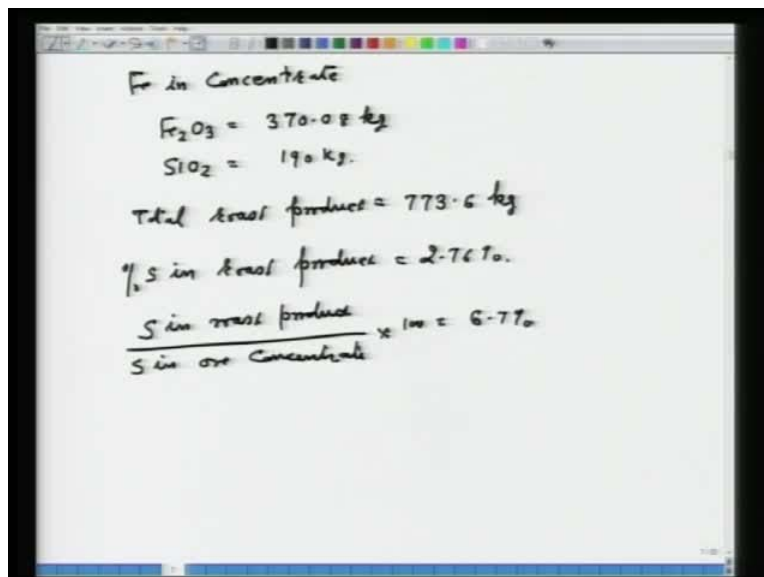 Fe in Concentrate
Fe2O3 = 370.08 kg
SiO2 = 190 kg.
Total roast product = 773.6 kg
% S in roast product = 2.76 %.
S in roast product
S in ore Concentrate × 100 = 6.7 %